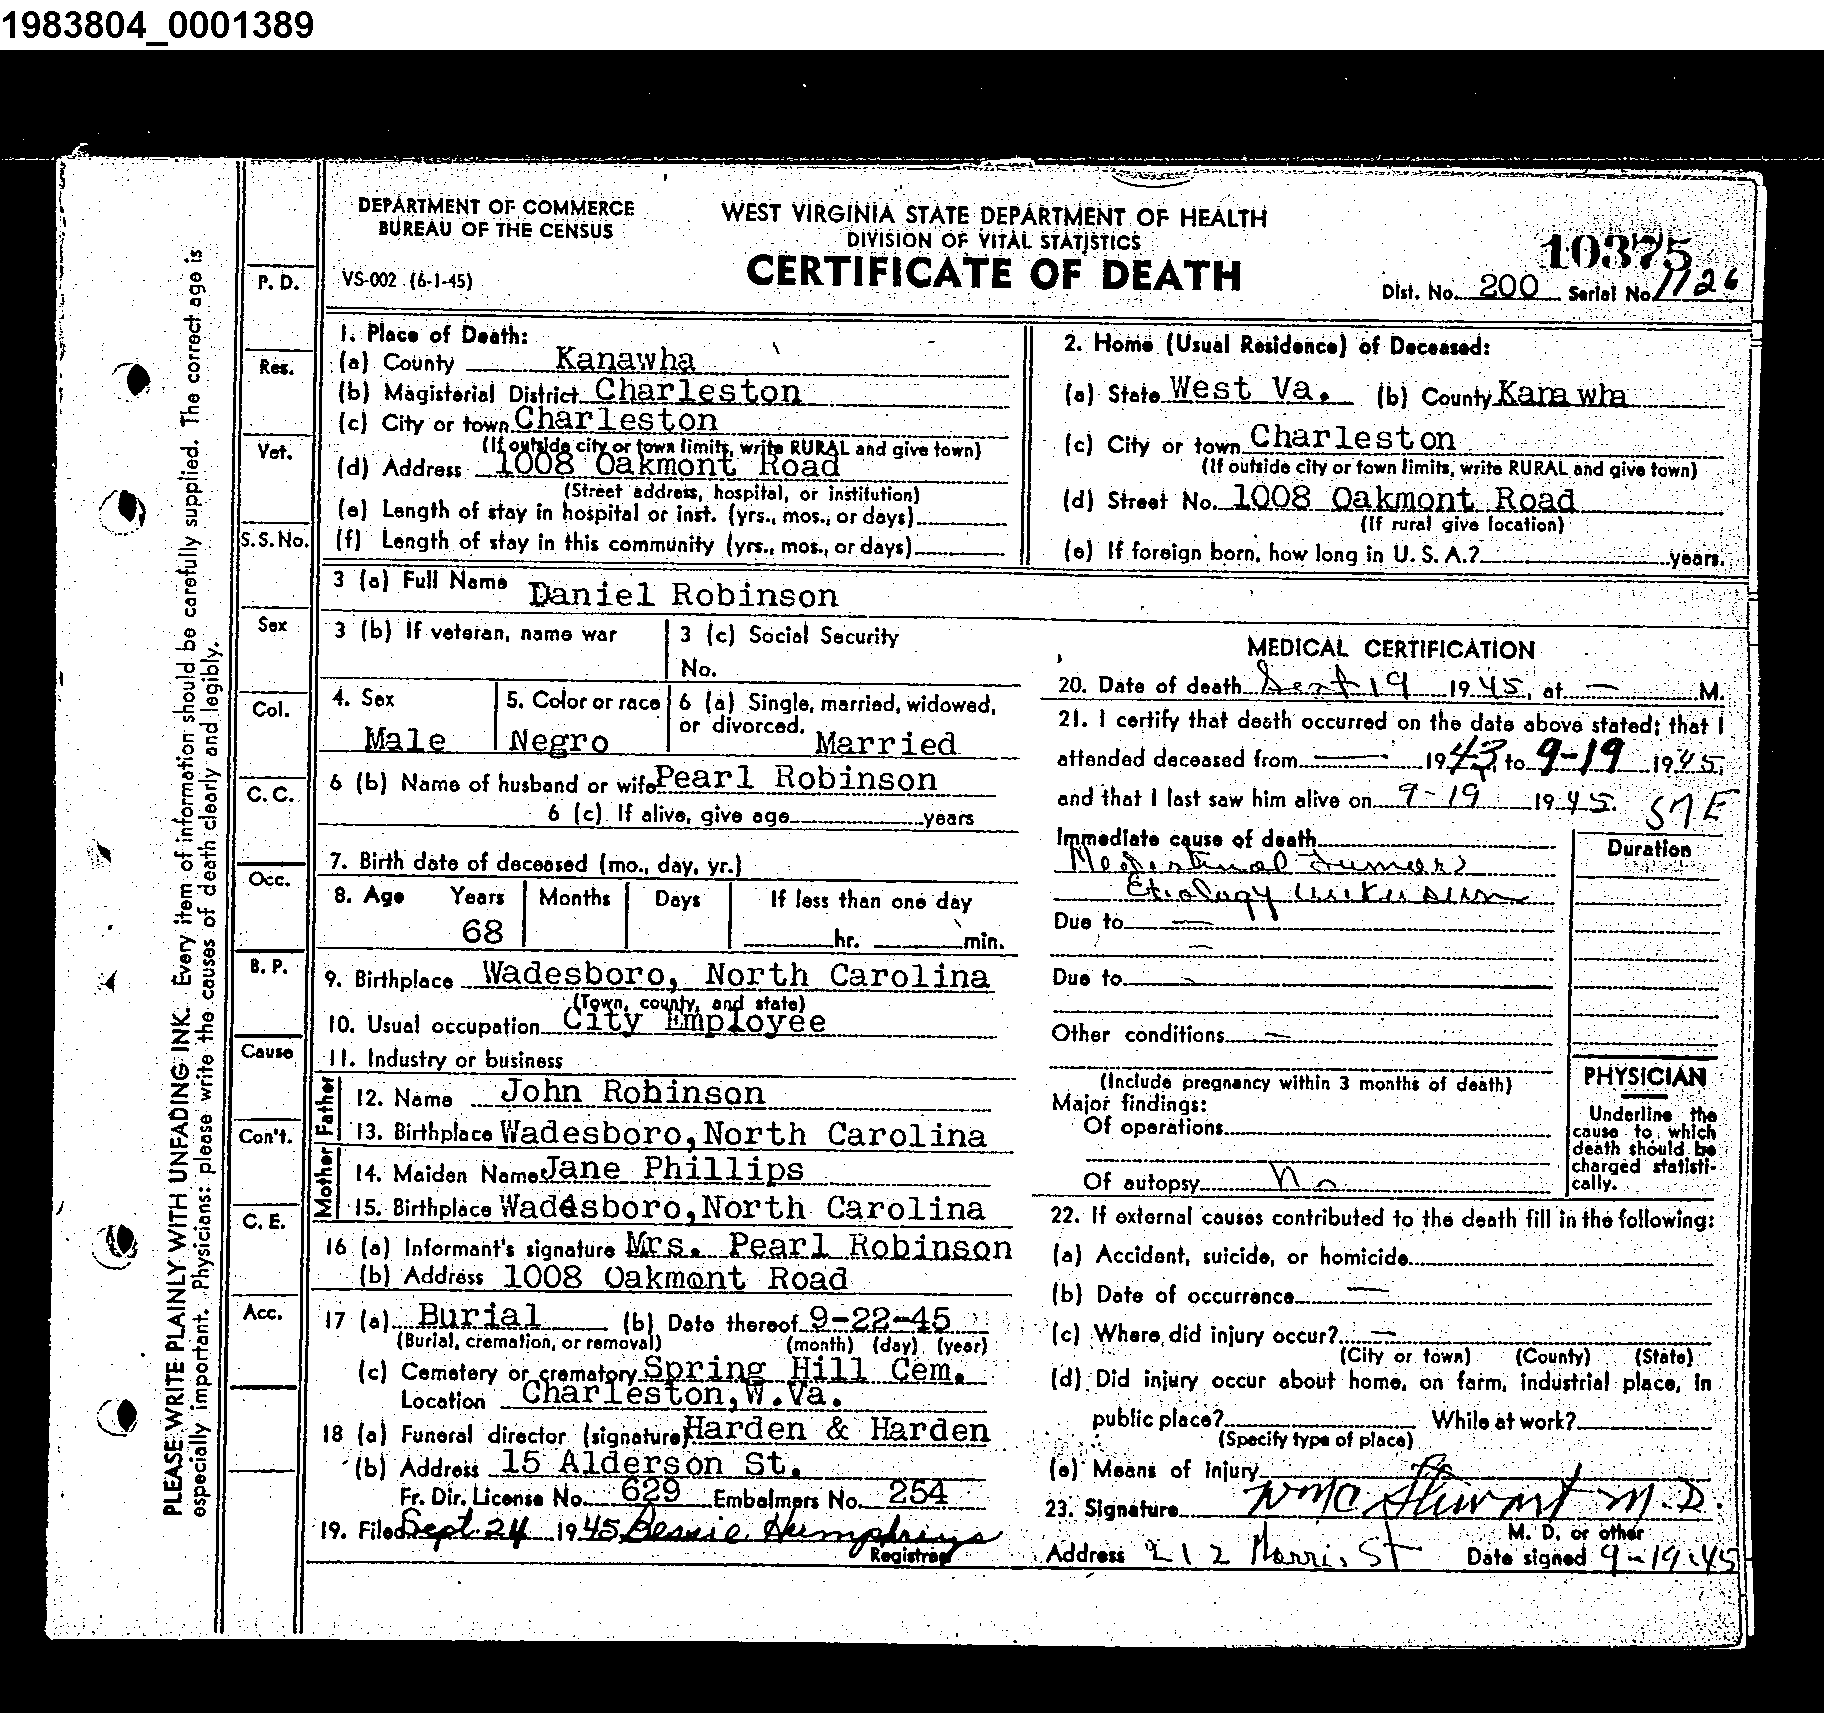 1983804_0001389
DEPARTMENT OF COMMERCE
BUREAU OF THE CENSUS
WEST VIRGINIA STATE DEPARTMENT OF HEALTH
DIVISION OF VITAL STATISTICS
CERTIFICATE OF DEATH
VS-002 (6-1-45)
10375
Dist. No. 200 Serial No. 1126
PLEASE WRITE PLAINLY WITH UNFADING INK. Every item of information should be carefully supplied. The correct age is
especially important. Physicians: please write the causes of death clearly and legibly.
P. D.
Res.
Vet.
S. S. No.
Sex
Col.
C. C.
Occ.
B. P.
Cause
Con't.
C. E.
Acc.
1. Place of Death:
(a) County Kanawha
(b) Magisterial District Charleston
(c) City or town Charleston
(If outside city or town limits, write RURAL and give town)
(d) Address 1008 Oakmont Road
(Street address, hospital, or institution)
(e) Length of stay in hospital or inst. (yrs., mos., or days)
(f) Length of stay in this community (yrs., mos., or days)
2. Home (Usual Residence) of Deceased:
(a) State West Va. (b) County Kanawha
(c) City or town Charleston
(If outside city or town limits, write RURAL and give town)
(d) Street No. 1008 Oakmont Road
(If rural give location)
(e) If foreign born, how long in U. S. A.? years.
3 (a) Full Name Daniel Robinson
3 (b) If veteran, name war
3 (c) Social Security
No.
4. Sex
Male
5. Color or race
Negro
6 (a) Single, married, widowed,
or divorced. Married
6 (b) Name of husband or wife Pearl Robinson
6 (c) If alive, give age years
7. Birth date of deceased (mo., day, yr.)
8. Age Years Months Days If less than one day
68 hr. min.
9. Birthplace Wadesboro, North Carolina
(Town, county, and state)
10. Usual occupation City Employee
11. Industry or business
Father
12. Name John Robinson
13. Birthplace Wadesboro, North Carolina
Mother
14. Maiden Name Jane Phillips
15. Birthplace Wadesboro, North Carolina
16 (a) Informant's signature Mrs. Pearl Robinson
(b) Address 1008 Oakmont Road
17 (a) Burial (b) Date thereof 9-22-45
(Burial, cremation, or removal) (month) (day) (year)
(c) Cemetery or crematory Spring Hill Cem.
Location Charleston, W. Va.
18 (a) Funeral director (signature) Harden & Harden
(b) Address 15 Alderson St.
Fr. Dir. License No. 629 Embalmers No. 254
19. Filed Sept. 24 1945 Bessie Humphreys
Registrar
MEDICAL CERTIFICATION
20. Date of death Sept 19 1945, at — M.
21. I certify that death occurred on the date above stated; that I
attended deceased from — 1943, to 9-19 1945,
and that I last saw him alive on 9-19 1945.
57E
Immediate cause of death
Mediastinal Tumors
Etiology unknown
Duration
Due to —
—
Due to -
Other conditions —
(Include pregnancy within 3 months of death)
Major findings:
Of operations
Of autopsy No
PHYSICIAN
Underline the
cause to which
death should be
charged statisti-
cally.
22. If external causes contributed to the death fill in the following:
(a) Accident, suicide, or homicide
(b) Date of occurrence —
(c) Where did injury occur? —
(City or town) (County) (State)
(d) Did injury occur about home, on farm, industrial place, in
public place? While at work?
(Specify type of place)
(e) Means of injury
23. Signature Wm C Stewart M. D.
M. D. or other
Address 212 Morris St Date signed 9-19-45